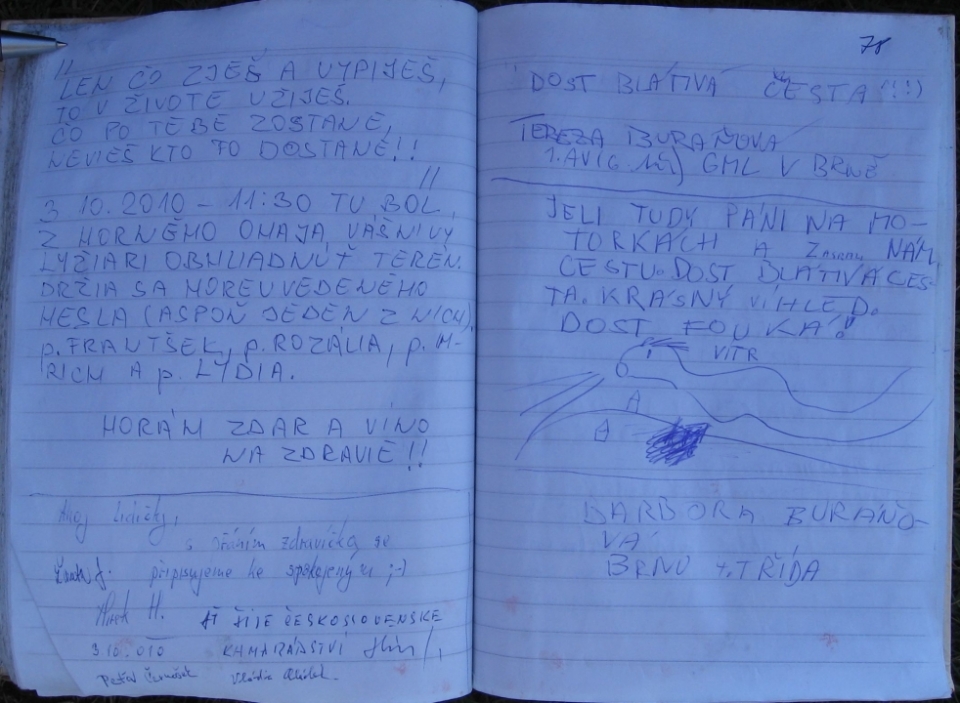 "LEN ČO ZJEŠ A VYPIJEŠ,
TO V ŽIVOTE UŽIJEŠ.
ČO PO TEBE ZOSTANE,
NEVIEŠ KTO TO DOSTANE!!"
3 10.2010 - 11:30 TU BOL,
Z HORNÉHO OHAJA, VÁŠNIVÝ
LYŽIARI OBHLIADNUŤ TERÉN.
DRŽIA SA HOREUVEDENÉHO
HESLA (ASPOŇ JEDEN Z NICH).
p. FRANTIŠEK, p. ROZÁLIA, p. H-
RICH A p. LÝDIA.
HORÁM ZDAR A VÍNO
NA ZDRAVIE!!
Ahoj lidičky,
s zdravíčka se
připisujeme ke spokojeným ;-)
Mirek H. AŤ ŽIJE ČESKOSLOVENSKE
3.10.010 KAMARÁDSTVÍ
78
DOST BLÁTIVÁ CESTA (!!!)
TEREZA BURAŇOVÁ
GML V BRNĚ
JELI TUDY PÁNI NA MO-
TORKÁCH A NÁM
CESTU. DOST BLÁTIVÁ CES-
TA. KRÁSNÝ VÍHLED.
DOST FOUKÁ!!
VÍTR
BARBORA BURAŇO-
VÁ
BRNO 4. TŘÍDA